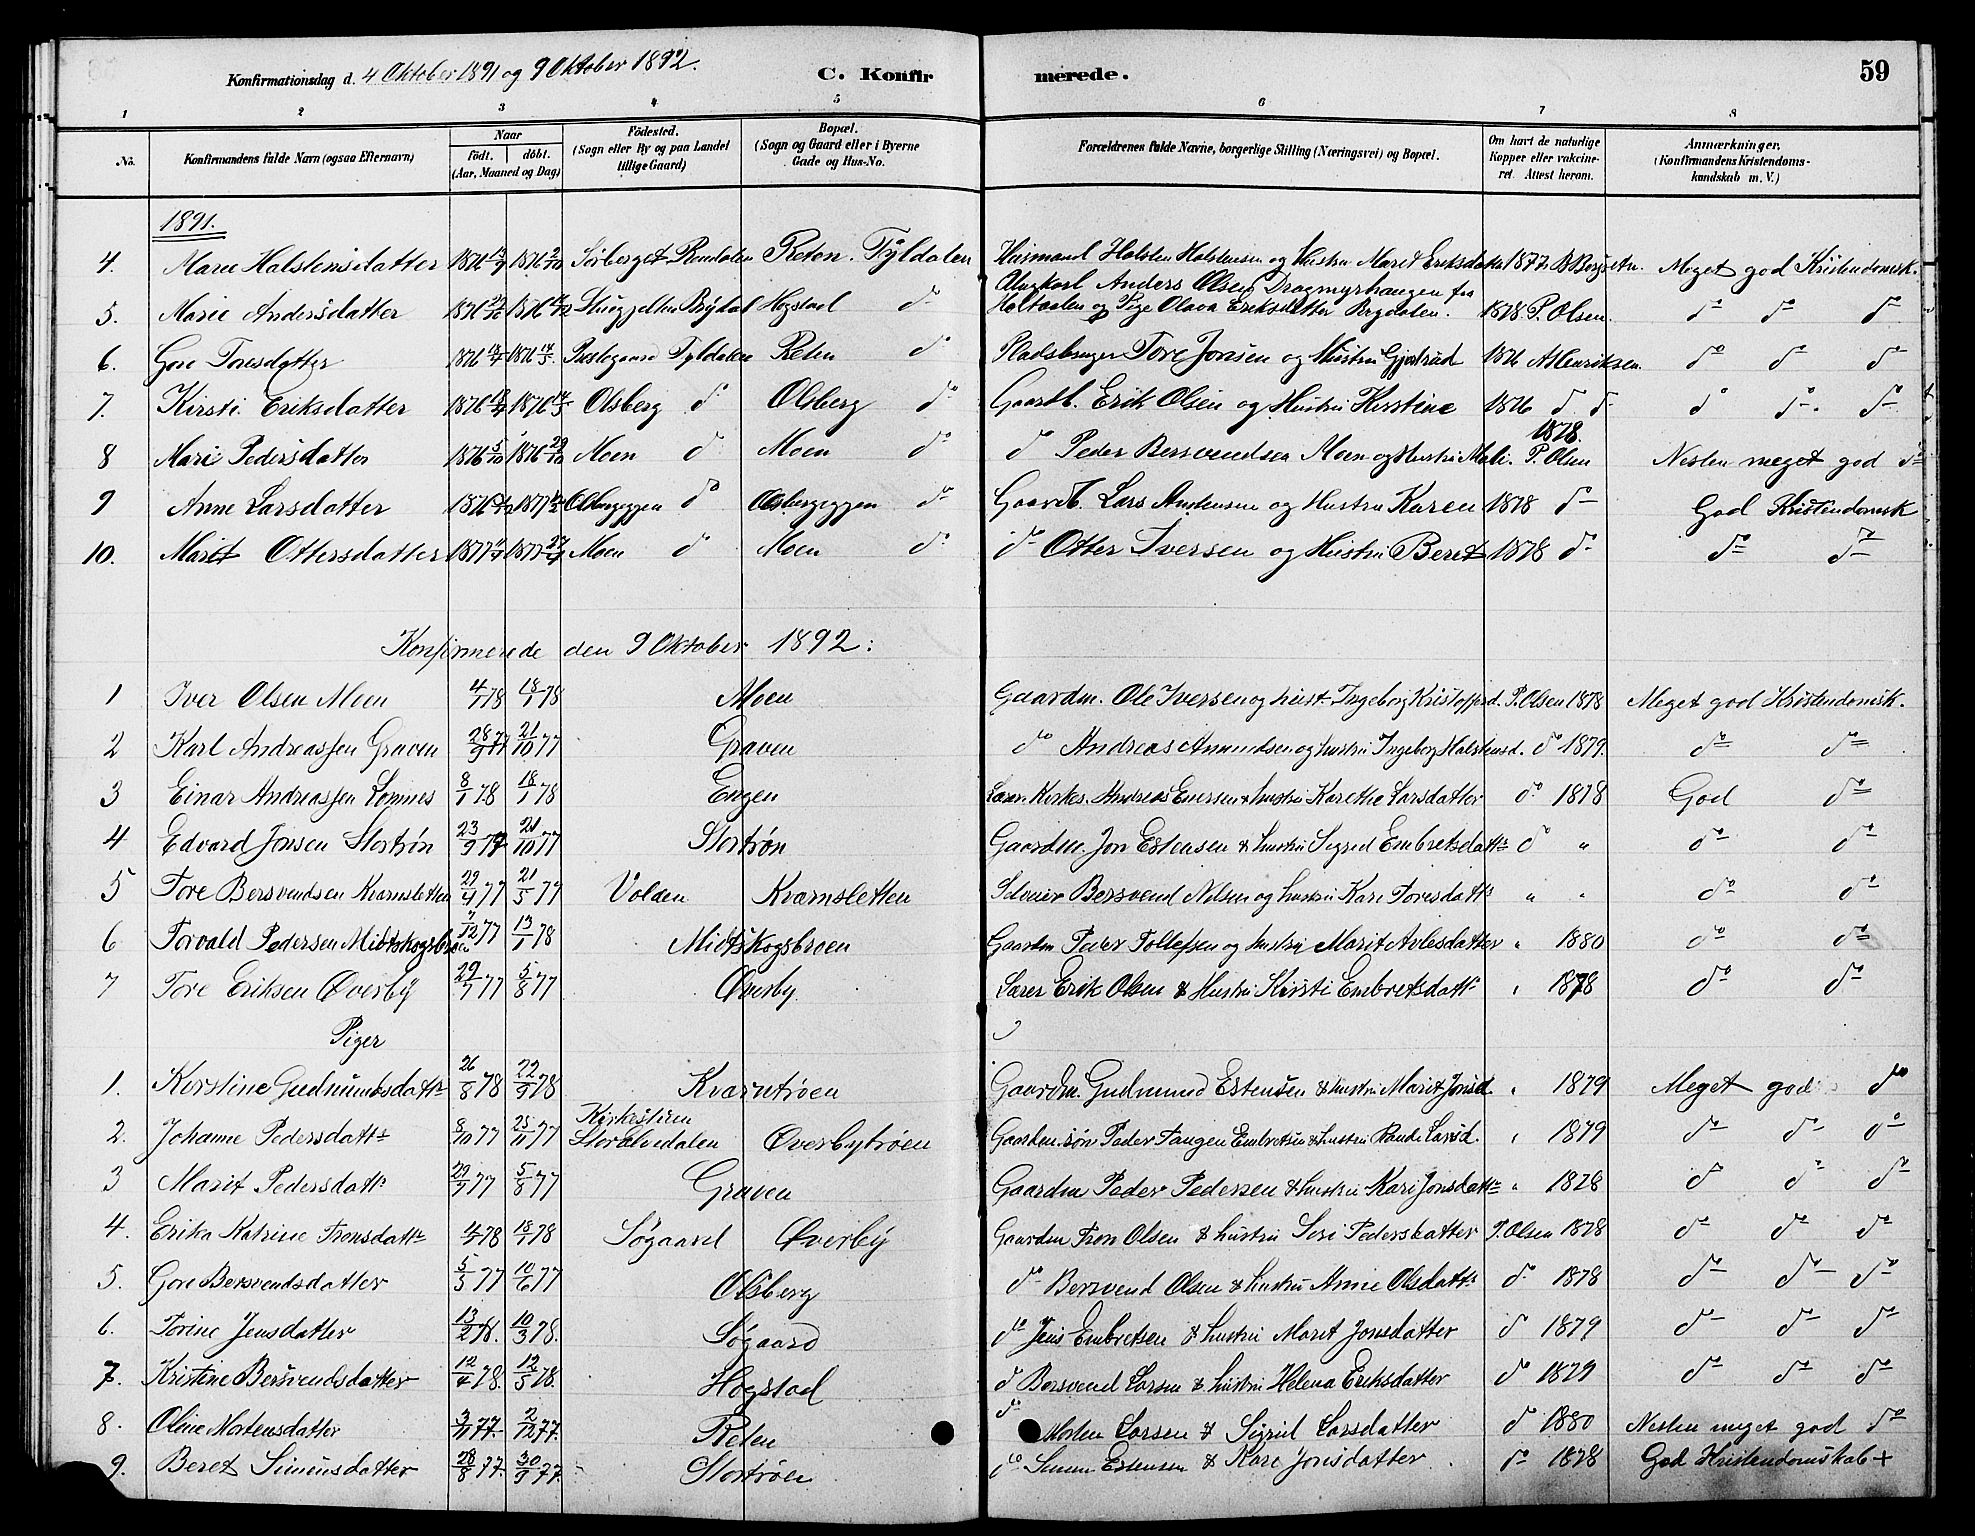 Konfirmationsdag d. 4 Oktober 1891 og 9 Oktober 1892. C. Konfirmerede. 59
1 2 3 4 5 6 7 8
No. Konfirmandens fulde Navn (ogsaa Efternavn) Naar født. døbt. (Aar, Maaned og Dag) Fødested. (Sogn eller By og paa Landet tillige Gaard) Bopæl. (Sogn og Gaard eller i Byerne Gade og Hus-No. Forældrenes fulde Navne, borgerlige Stilling (Næringsvei) og Bopæl. Om havt de naturlige Kopper eller vakcineret. Attest herom. Anmærkninger. (Konfirmandens Kristendomskundskab m. V.)
1891.
4. Marie Halstensdatter 1876 1876 Sørberget Rendalen Reten. Tyldalen Husmand Halsten Halstensen og Hustru Marit Eriksdatter 1877 Meget god Kristendomsk.
5. Marie Andersdatter 1876 1876 Hogstad do Ungkarl Anders Olsen Dragmyrhaugen fra Holtaalen og Pige Olava Eriksdatter 1878 P. Olsen. do do do
6. Gore Toresdatter 1876 1876 Prestegaard Tyldalen Reten do Pladsbruger Tore Jonsen og Hustru Gjertrud 1876 A Henriksen. do do do
7. Kirsti Eriksdatter 1876 1876 Olsberg do Olsberg do Gaardb. Erik Olsen og Hustru Kirstine 1876 do do do do do
8 Mari Pedersdatter 1876 5/10 1876 29/10 Moen do Moen do do Peder Bersvendsen Moen og Hustru Mali. 1878. P. Olsen Nesten meget god do
9 Anne Larsdatter 1876 1877 Olsbergeggen do Olsbergeggen do Gaardb. Lars Andersen og Hustru Karen 1878 do God Kristendomsk
10. Marit Ottersdatter 1877 1877 Moen do Moen do do Otter Iversen og Hustru Beret 1878 do do do
Konfirmerede den 9 Oktober 1892:
1 Iver Olsen Moen 4/1 78 18/1 78 Moen Gaardm. Ole Iversen og hust. Ingeborg Kristoffersd. P. Olsen 1878 Meget god Kristendomsk.
2 Karl Andreassen Graven 28/9 77 21/10 77 Graven do Andreas Amundsen og hustru Ingeborg Halstensd. do 1879. do do
3 Einar Andreassen Lomnes 8/1 78 18/1 78 Engen Andreas Enersen & hustru Karethe Larsdatter do 1878 God do
4 Edvard Jonsen Stortrøn 23/9 77 21/10 77 Stortrøn Gaardm. Jon Estensen & hustru Sigrid Embretsdattr do " do do
5 Tore Bersvendsen Kvarnsletten 29/4 77 21/5 77 Volden Kvarnsletten Selveier Bersvend Nilsen og hustru Kari Toresdattr " " do do
6 Torvald Pedersen Midtskogsbroen 7/12 77 13/1 78 Midtskogsbroen Gaardm Peder Tollefsen og hustru Marit Avlesdatter " 1880 do do
7 Tore Eriksen Øverby 29/7 77 5/8 77 Øverby Lærer Erik Olsen & Hustru Kirsti Embretsdattr " 1878 do do
Piger
1. Kirstine Gudmundsdattr 26/8 78 22/9 78 Kvarntrøen Gaardm. Gudmund Estensen & hustru Marit Jonsd. " 1879 Meget god do
2. Johanne Pedersdattr 8/10 77 25/11 77 Kirkestuen Storelvedalen Øverbytrøen Gaardm. søn Peder Fangen Embretsen & hustru Rande Larsd. " 1879 do do do
3 Marit Pedersdattr 29/7 77 5/8 77 Graven Gaardm Peder Pedersen & hustru Kari Jonsdattr " 1878 do do do
4. Erika Katrine Tronsdattr 4/1 78 18/1 78 Søgaard Øverby Gaardm Tron Olsen & hustru Siri Pedersdatter P. Olsen 1878 do do do
5. Gore Bersvendsdatter 5/3 77 10/6 77 Olsberg do Bersvend Olsen & hustru Anne Olsdattr do 1878 do do do
6. Torine Jensdatter 13/2 78. 10/3 78. Søgaard do Jens Embretsen & hustru Marit Jonsdatter do 1879 do do do
7. Kristine Bersvendsdatter 12/4 78. 12/5 78. Hogstad do Bersvend Larsen & hustru Helena Eriksdatter do 1879 do do do
8. Oline Mortensdatter 3/11 77. 2/12 77. Reten do Morten Larsen & Sigrid Larsdatter do 1880 Nesten meget god do
9. Beret Simensdatter 28/8 77. 30/9 77. Stortrøen do Simen Estensen & Kari Jonsdatter do 1878 God Kristendomskab +